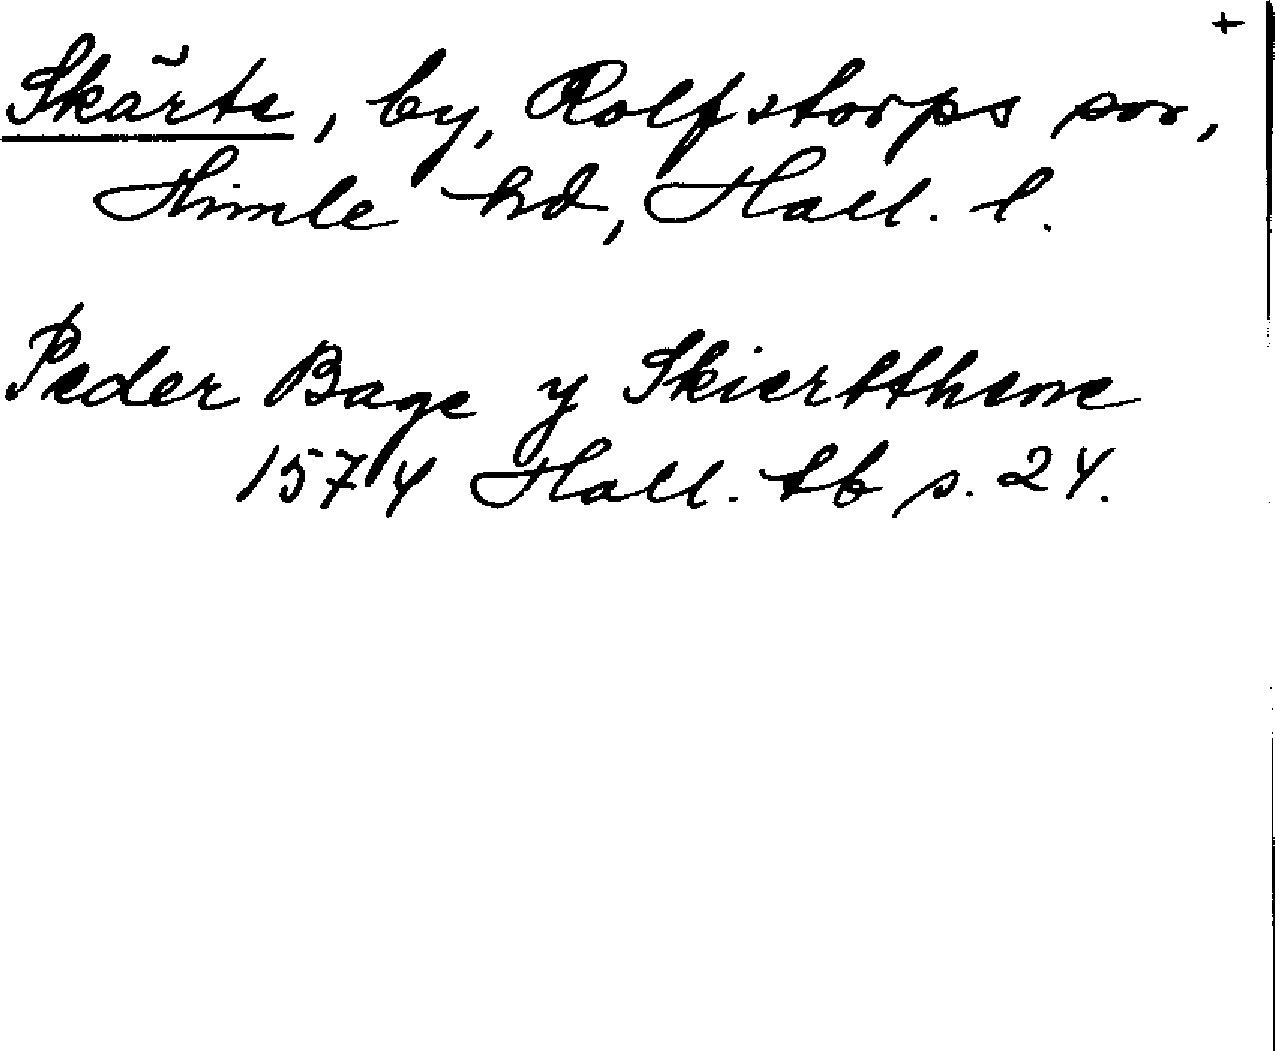 +
Skärte, by, Rolfstorps sn,
Himle hd, Hall. l.
Peder Bage y Skiertthene
1574 Hall. tb s. 24.